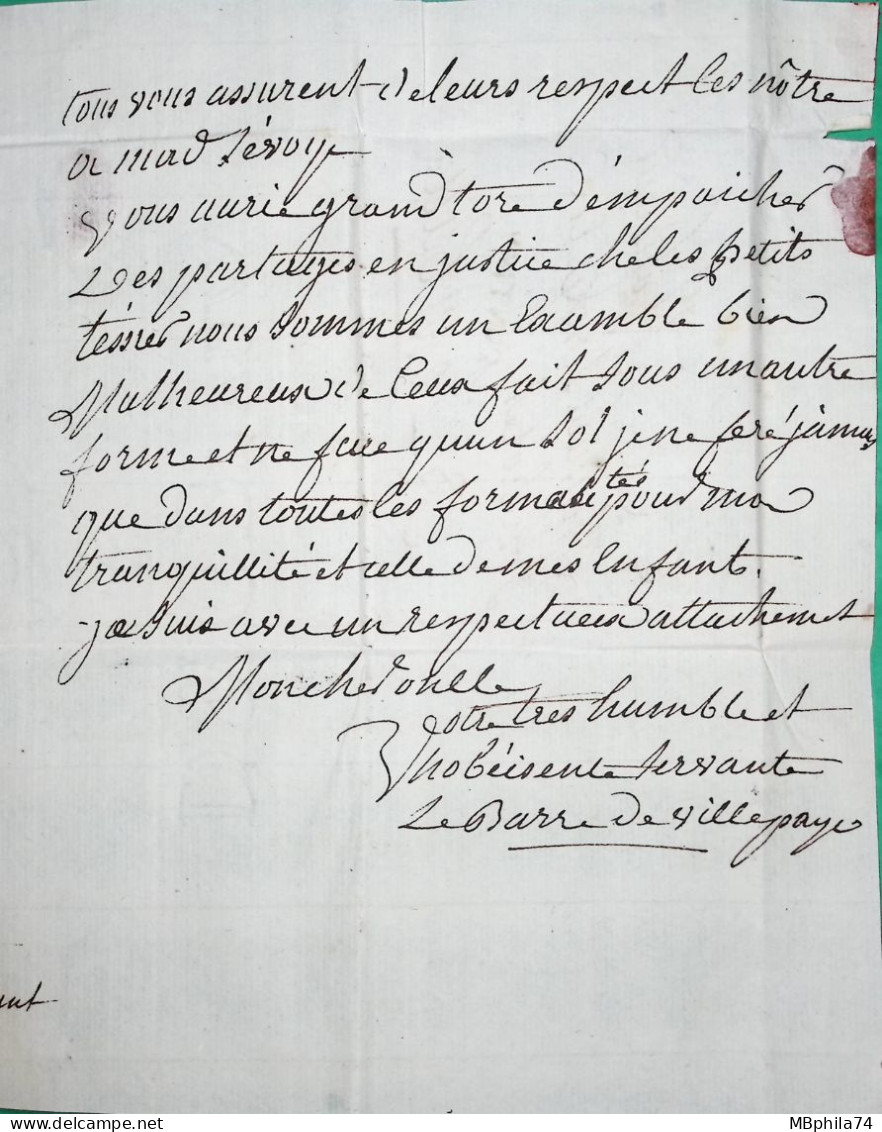 tous vous assurent de leurs respect les nôtre
a mad
vous aurie grand tore d'émpaicher
Les partages en justice che les petits
nous sommes un Exemble bien
Malheureux de Ceux fait sous un autre
forme et ne faire quun sol je ne feré jamais
que dans toutes les formalités pour ma
tranquillité et celle de mes Enfant.
je suis avec un respectueux attachemet
Mon cher oncle
votre tres humble et
hobéisente servante
Le Barre de villepaye
ant
delcampe.net
MBphila74